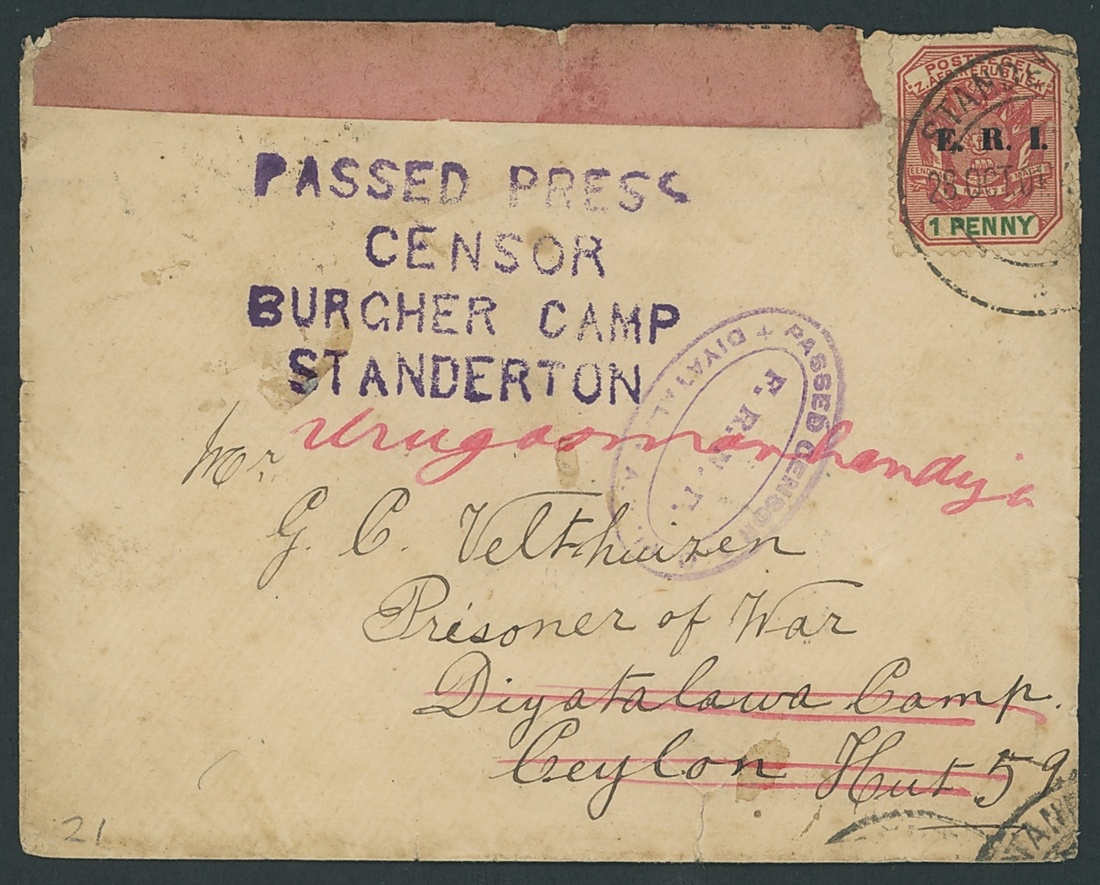 POSTZEGEL
Z.AFR.REPUBLIEK
E. R. I.
EENDRAGT MAAKT MAGT
1 PENNY
OCT 01
PASSED PRESS
CENSOR
BURGHER CAMP
STANDERTON
PASSED CENSOR
DIYATAL
F.
Mr. Urugasmanhandiya
G. C. Velthuizen
Prisoner of War
Diyatalawa Camp.
Ceylon Hut 59
21